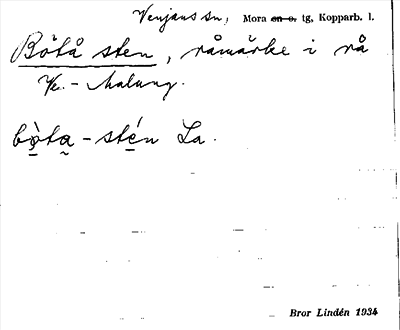 Venjans sn, Mora sn o. tg, Kopparb. l.
Bötå sten, råmärke i rå
Ve. - Malung.
bò̱ta̰ - sté̱n La.
Bror Lindén 1934